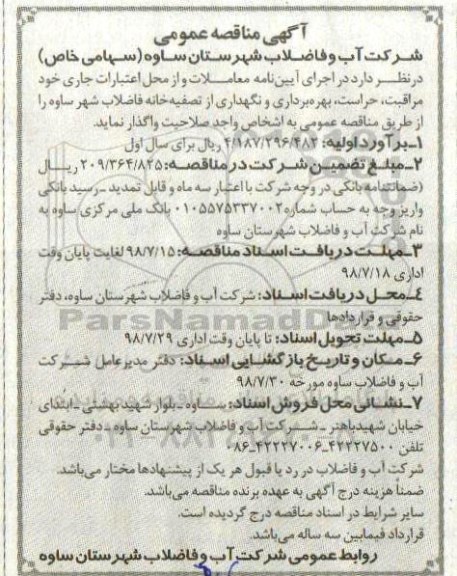 آگهی مناقصه عمومی
شرکت آب و فاضلاب شهرستان ساوه (سهامی خاص)
در نظر دارد در اجرای آیین‌نامه معاملات و از محل اعتبارات جاری خود
مراقبت، حراست، بهره‌برداری و نگهداری از تصفیه‌خانه فاضلاب شهر ساوه را
از طریق مناقصه عمومی به اشخاص واجد صلاحیت واگذار نماید.
۱ـ برآورد اولیه: ۴/۱۸۷/۲۹۶/۴۸۲ ریال برای سال اول
۲ـ مبلغ تضمین شرکت در مناقصه: ۲۰۹/۳۶۴/۸۲۵ ریال
(ضمانتنامه بانکی در وجه شرکت با اعتبار سه ماه و قابل تمدید ـ رسید بانکی
واریز وجه به حساب شماره ۰۱۰۵۵۷۵۳۳۷۰۰۲ بانک ملی مرکزی ساوه به
نام شرکت آب و فاضلاب شهرستان ساوه
۳ـ مهلت دریافت اسناد مناقصه: ۹۸/۷/۱۵ لغایت پایان وقت
اداری ۹۸/۷/۱۸
٤ـ محل دریافت اسناد: شرکت آب و فاضلاب شهرستان ساوه، دفتر
حقوقی و قراردادها
۵ـ مهلت تحویل اسناد: تا پایان وقت اداری ۹۸/۷/۲۹
۶ـ مکان و تاریخ بازگشایی اسناد: دفتر مدیرعامل شرکت
آب و فاضلاب ساوه مورخه ۹۸/۷/۳۰
۷ـ نشانی محل فروش اسناد: ساوه ـ بلوار شهید بهشتی ـ ابتدای
خیابان شهید باهنر ـ شرکت آب و فاضلاب شهرستان ساوه ـ دفتر حقوقی
تلفن ۴۲۲۲۷۵۰۰ـ۴۲۲۲۷۰۰۶ـ۰۸۶
شرکت آب و فاضلاب در رد یا قبول هر یک از پیشنهادها مختار می‌باشد.
ضمناً هزینه درج آگهی به عهده برنده مناقصه می‌باشد.
سایر شرایط در اسناد مناقصه درج گردیده است.
قرارداد فیمابین سه ساله می‌باشد.
روابط عمومی شرکت آب و فاضلاب شهرستان ساوه